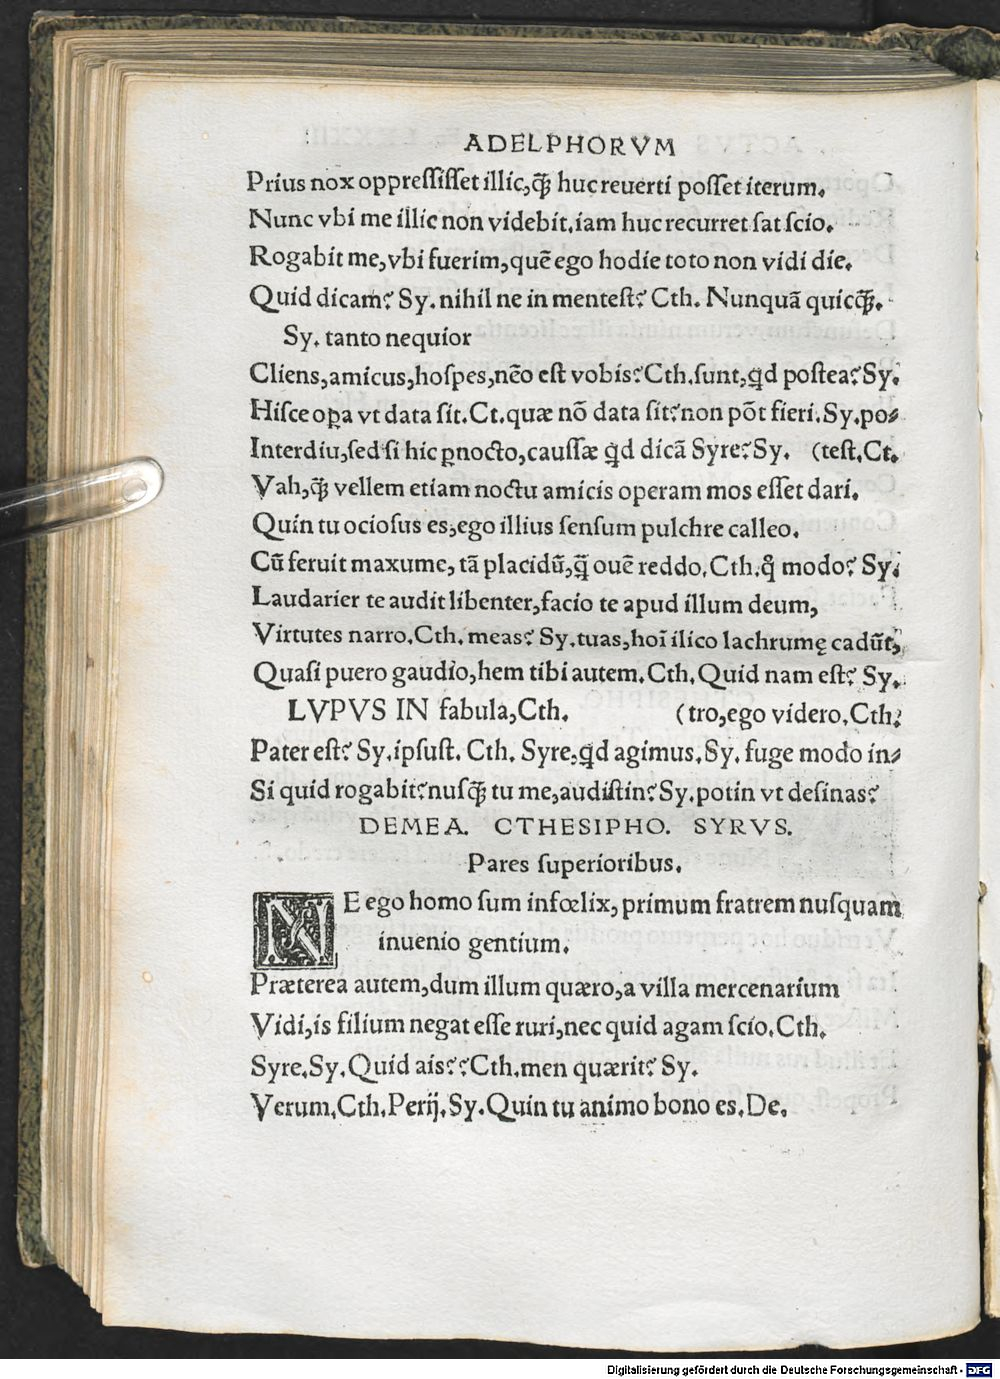 ADELPHORVM
Prius nox oppreſſiſſet illic,q̃ huc reuerti poſſet iterum.
Nunc vbi me illic non videbit.iam huc recurret ſat ſcio.
Rogabit me,vbi fuerim,quē ego hodie toto non vidi die.
Quid dicam? Sy. nihil ne in menteſt? Cth. Nunquā quicq̃.
Sy. tanto nequior
Cliens,amicus,hoſpes,nēo eſt vobis?Cth.ſunt,qd poſtea?Sy.
Hiſce oꝑa vt data ſit.Ct.quæ nō data ſit?non pōt fieri.Sy.po⸗
Interdiu,ſed ſi hic ꝑnocto,cauſſæ qd dicā Syre?Sy. (teſt.Ct.
Vah,q̃ vellem etiam noctu amicis operam mos eſſet dari.
Quin tu ocioſus es,ego illius ſenſum pulchre calleo.
Cū feruit maxume, tā placidū,q̃ ouē reddo.Cth.qͥ modo? Sy.
Laudarier te audit libenter,facio te apud illum deum,
Virtutes narro.Cth.meas? Sy.tuas,hoī ilico lachrumę cadūt,
Quaſi puero gaudio,hem tibi autem.Cth.Quid nam eſt? Sy.
LVPVS IN fabula,Cth. (tro,ego videro.Cth.
Pater eſt? Sy.ipſuſt. Cth. Syre,qd agimus.Sy. fuge modo in⸗
Si quid rogabit?nuſq̃ tu me,audiſtin?Sy.potin vt deſinas?
DEMEA. CTHESIPHO. SYRVS.
Pares ſuperioribus.
NE ego homo ſum infœlix,primum fratrem nuſquam
inuenio gentium.
Præterea autem,dum illum quæro,a villa mercenarium
Vidi,is filium negat eſſe ruri,nec quid agam ſcio.Cth.
Syre.Sy.Quid ais??Cth.men quærit? Sy.
Verum.Cth.Perij.Sy.Quin tu animo bono es.De.
Digitalisierung gefördert durch die Deutsche Forschungsgemeinschaft - DFG